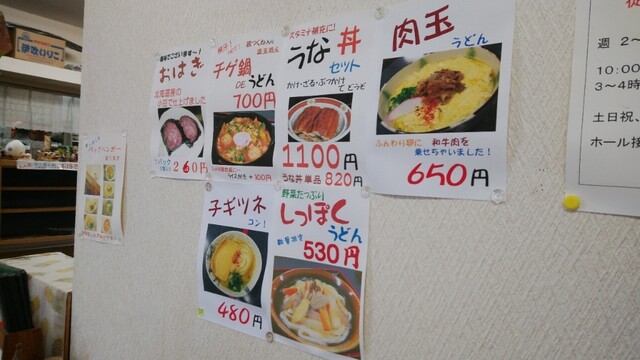 伊吹いりこ
おはぎ
北海道産の
小豆で仕上げました
260円
チゲ鍋
DEうどん
700円
+100円
スタミナ補充に!
うな丼
セット
かけ・ざる・ぶっかけ
で どうぞ
1100円
うな丼 単品 820円
肉玉
うどん
ふんわり卵に 和牛肉を
乗せちゃいました!
650円
子ギツネ
コン!
480円
野菜たっぷり
しっぽく
うどん
数量限定
530円
週 2〜
10:00
3〜4時
土日祝、
ホール接